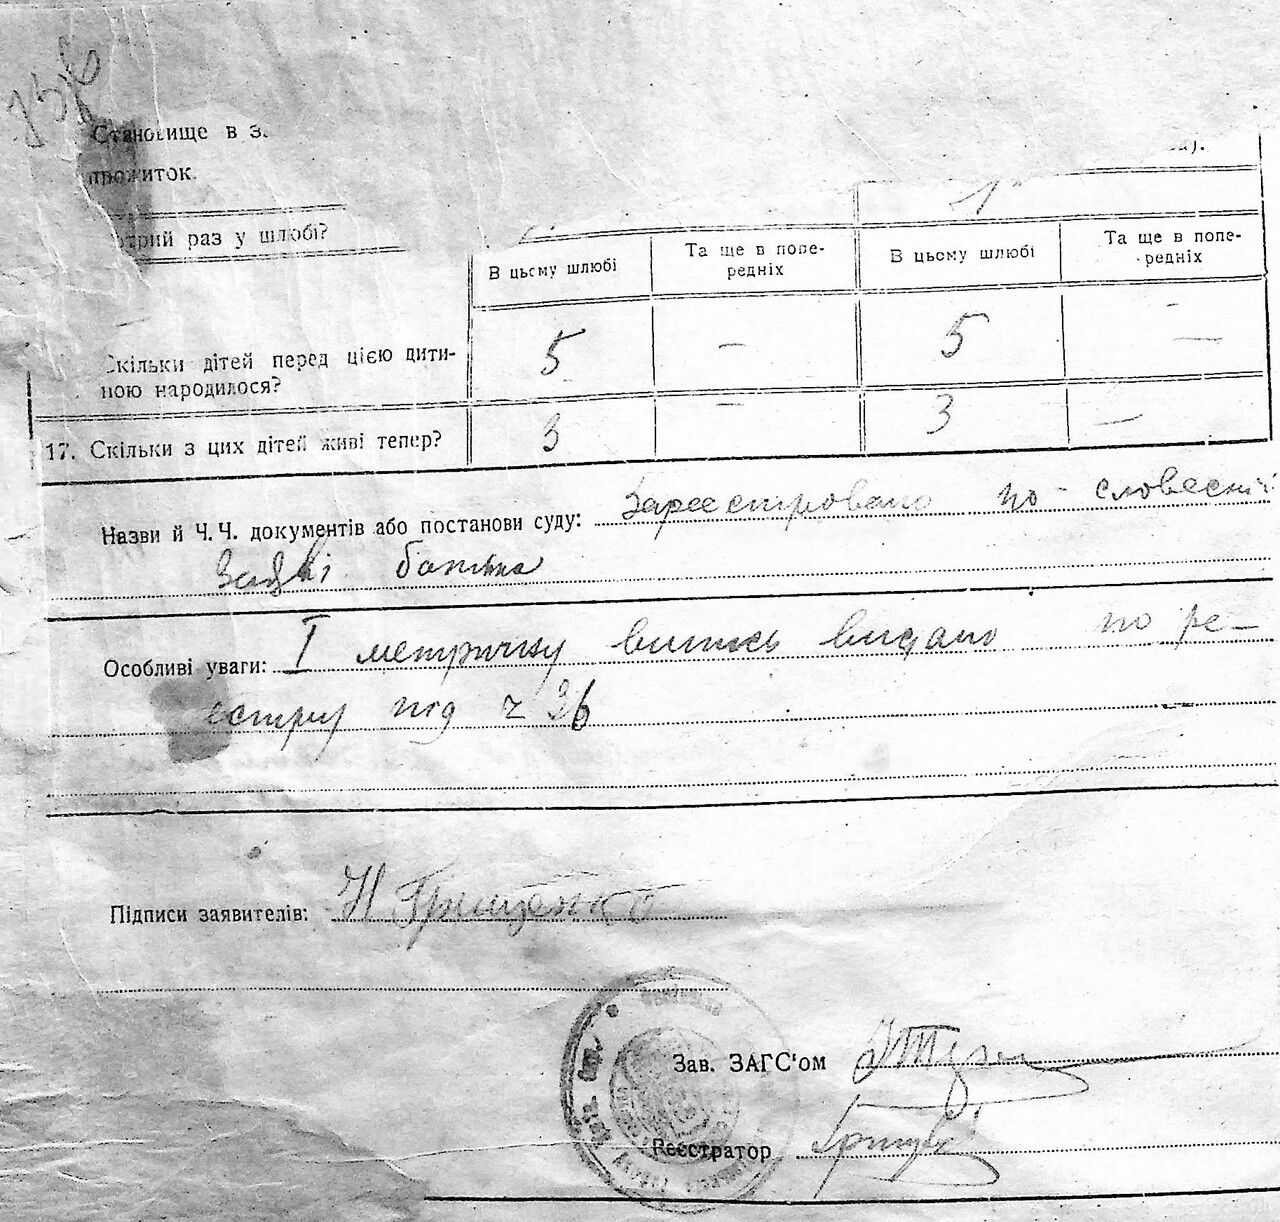 756
Становище в з.
прожиток.
трий раз у шлюбі?
1
В цьому шлюбі
Та ще в попе-
редніх
В цьому шлюбі
Та ще в попе-
редніх
Скільки дітей перед цією дити-
ною народилося?
5 — 5 —
17. Скільки з цих дітей живі тепер?
3 — 3 —
Назви й Ч.Ч. документів або постанови суду: Зареєстровано по словесній
заяві батька
Особливі уваги: І метричну випись видано по ре-
єстру під ч 36
Підписи заявителів: Н Грищенко
Зав. ЗАГС'ом
Реєстратор